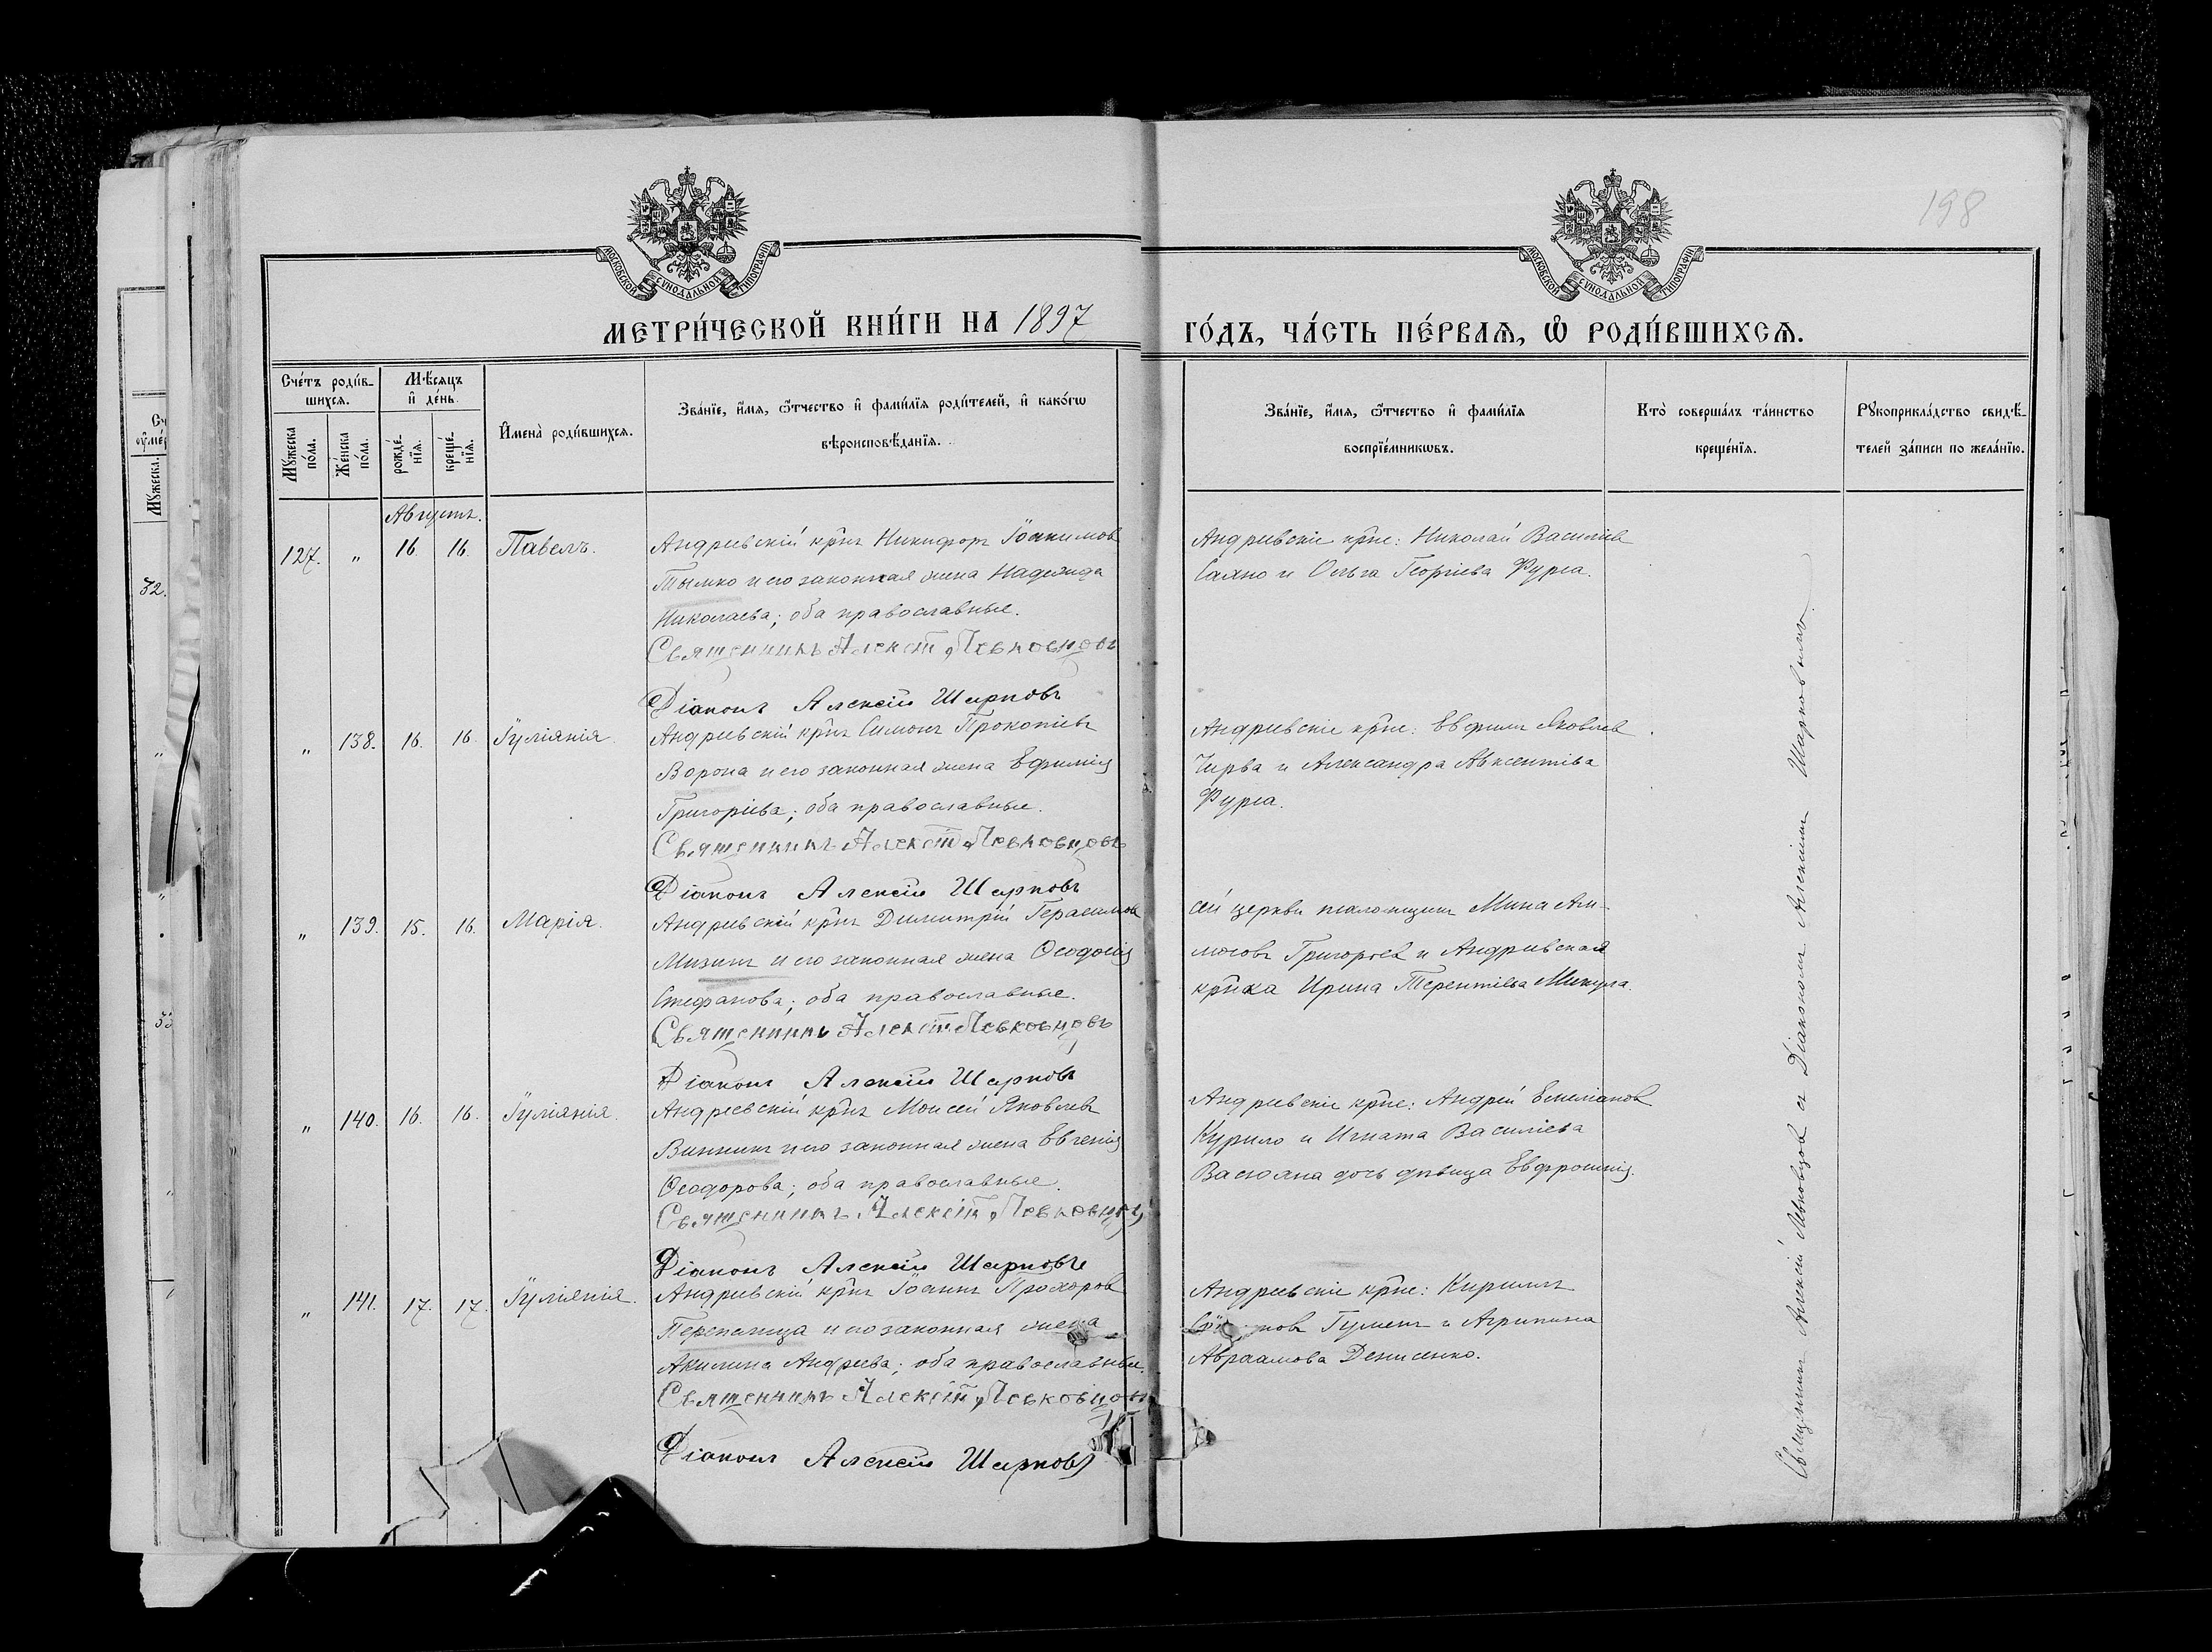 198
МОСКОВСКОЙ СѴНОДАЛЬНОЙ ТИПОГРАФІИ
МОСКОВСКОЙ СѴНОДАЛЬНОЙ ТИПОГРАФІИ
МЕТРИ́ЧЕСКОЙ КНИ́ГИ НА 1897
ГО́ДЪ, ЧА́СТЬ ПЕ́РВАѦ, Ѽ РОДИ́ВШИХСѦ.
Сче́тъ роди́в-
шихсѧ.
Мѣ́сѧцъ
и҆ де́нь.
Мꙋ́жеска
по́ла.
Же́нска
по́ла.
рожде́-
нїѧ.
креще́-
нїѧ.
И҆мена̀ роди́вшихсѧ.
Зва́нїе, и҆́мѧ, ѻ҆́тчество и҆ фами́лїѧ роди́телей, и҆ како́гѡ
вѣроисповѣ́данїѧ.
Зва́нїе, и҆́мѧ, ѻ҆́тчество и҆ фами́лїѧ
воспрїе́мникѡвъ.
Кто̀ соверша́лъ та́инство
креще́нїѧ.
Рꙋкоприкла́дство свидѣ́-
телей за́писи по жела́нїю.
Августъ.
127. " 16. 16. Павелъ.
Андреевскій кр̃нъ Никифоръ Іоакимовъ
Тымко и его законная жена Надежда
Николаева; оба православные.
Священникъ Алексій Левковцовъ
Діаконъ Алексій Шарковъ
Андреевскіе кр̃не: Николай Василіев
Саяно и Ольга Георгіева Фурса.
" 138. 16. 16. Іуліанія.
Андреевскій кр̃нъ Симонъ Прокопіевъ
Ворона и его законная жена Ефимія
Григоріева; оба православные.
Священникъ Алексій Левковцовъ
Діаконъ Алексій Шарковъ
Андреевскіе кр̃не: Евфимъ Яковлев
Чирва и Александра Авксентіева
Фурса.
" 139. 15. 16. Марія.
Андреевскій кр̃нъ Димитрій Герасимов
Мизинъ и его законная жена Ѳеодосія
Стефанова; оба православные.
Священникъ Алексій Левковцовъ
Діаконъ Алексій Шарковъ
сей церкви псаломщикъ Мина
Григорьев и Андреевская
кр̃нка Ирина Терентіева Микула.
" 140. 16. 16. Іуліанія.
Андреевскій кр̃нъ Моисей Яковлевъ
Винникъ и его законная жена Евгенія
Ѳеодорова; оба православные.
Священникъ Алексій Левковцовъ
Діаконъ Алексій Шарковъ
Андреевскіе кр̃не: Андрей Емеліанов
Курило и Игната Василіева
дочь дѣвица Евфросинія.
" 141. 17. 17. Іуліанія.
Андреевскій кр̃нъ Іоаннъ Прохоров
Перепелица и его законная жена
Акилина Андреева; оба православные.
Священникъ Алексій Левковцовъ
Діаконъ Алексій Шарковъ
Андреевскіе кр̃не: Кириллъ
Гуменъ и Агрипина
Авраамова Денисенко.
Священникъ Алексій Левковцовъ съ Діакономъ Алексіемъ Шарковымъ.
32.